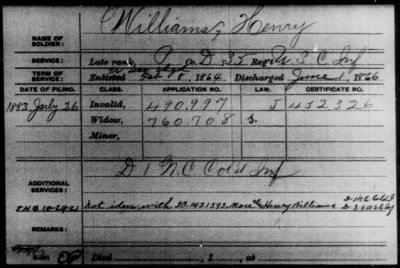 Williams, Henry
NAME OF SOLDIER:
SERVICE: Late rank, P Co. D, 35 Reg't U. S. C. Inf
TERM OF SERVICE: Enlisted Feb 8, 1864. Discharged June 1, 1866
DATE OF FILING. CLASS. APPLICATION NO. LAW. CERTIFICATE NO.
1883 July 26 Invalid, 490,997 J 452326
Widow, 760,708 S.
Minor,
D 1 N.C. Col'd Inf
ADDITIONAL SERVICES:
Not iden with SO. 1431593, Henry Williams
REMARKS:
Died , 1 , at